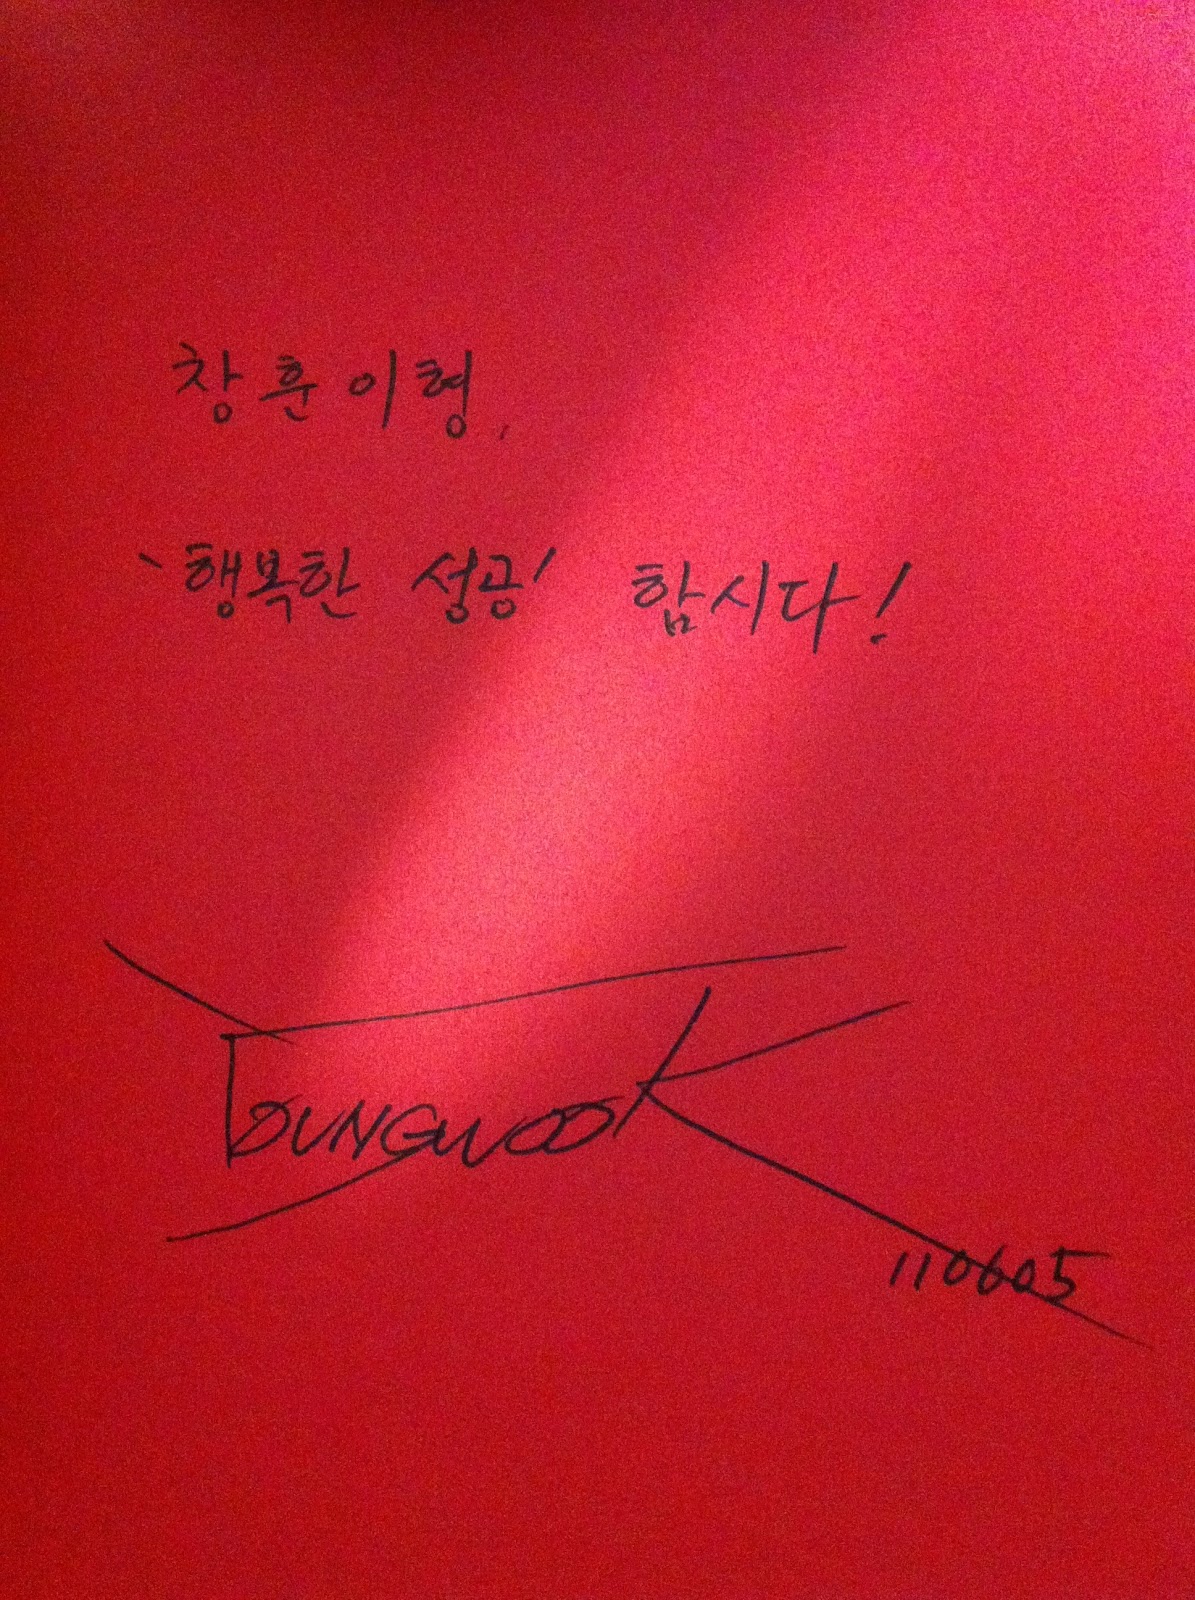 창훈이형,
'행복한 성공' 합시다!
YOUNGWOOK
110605